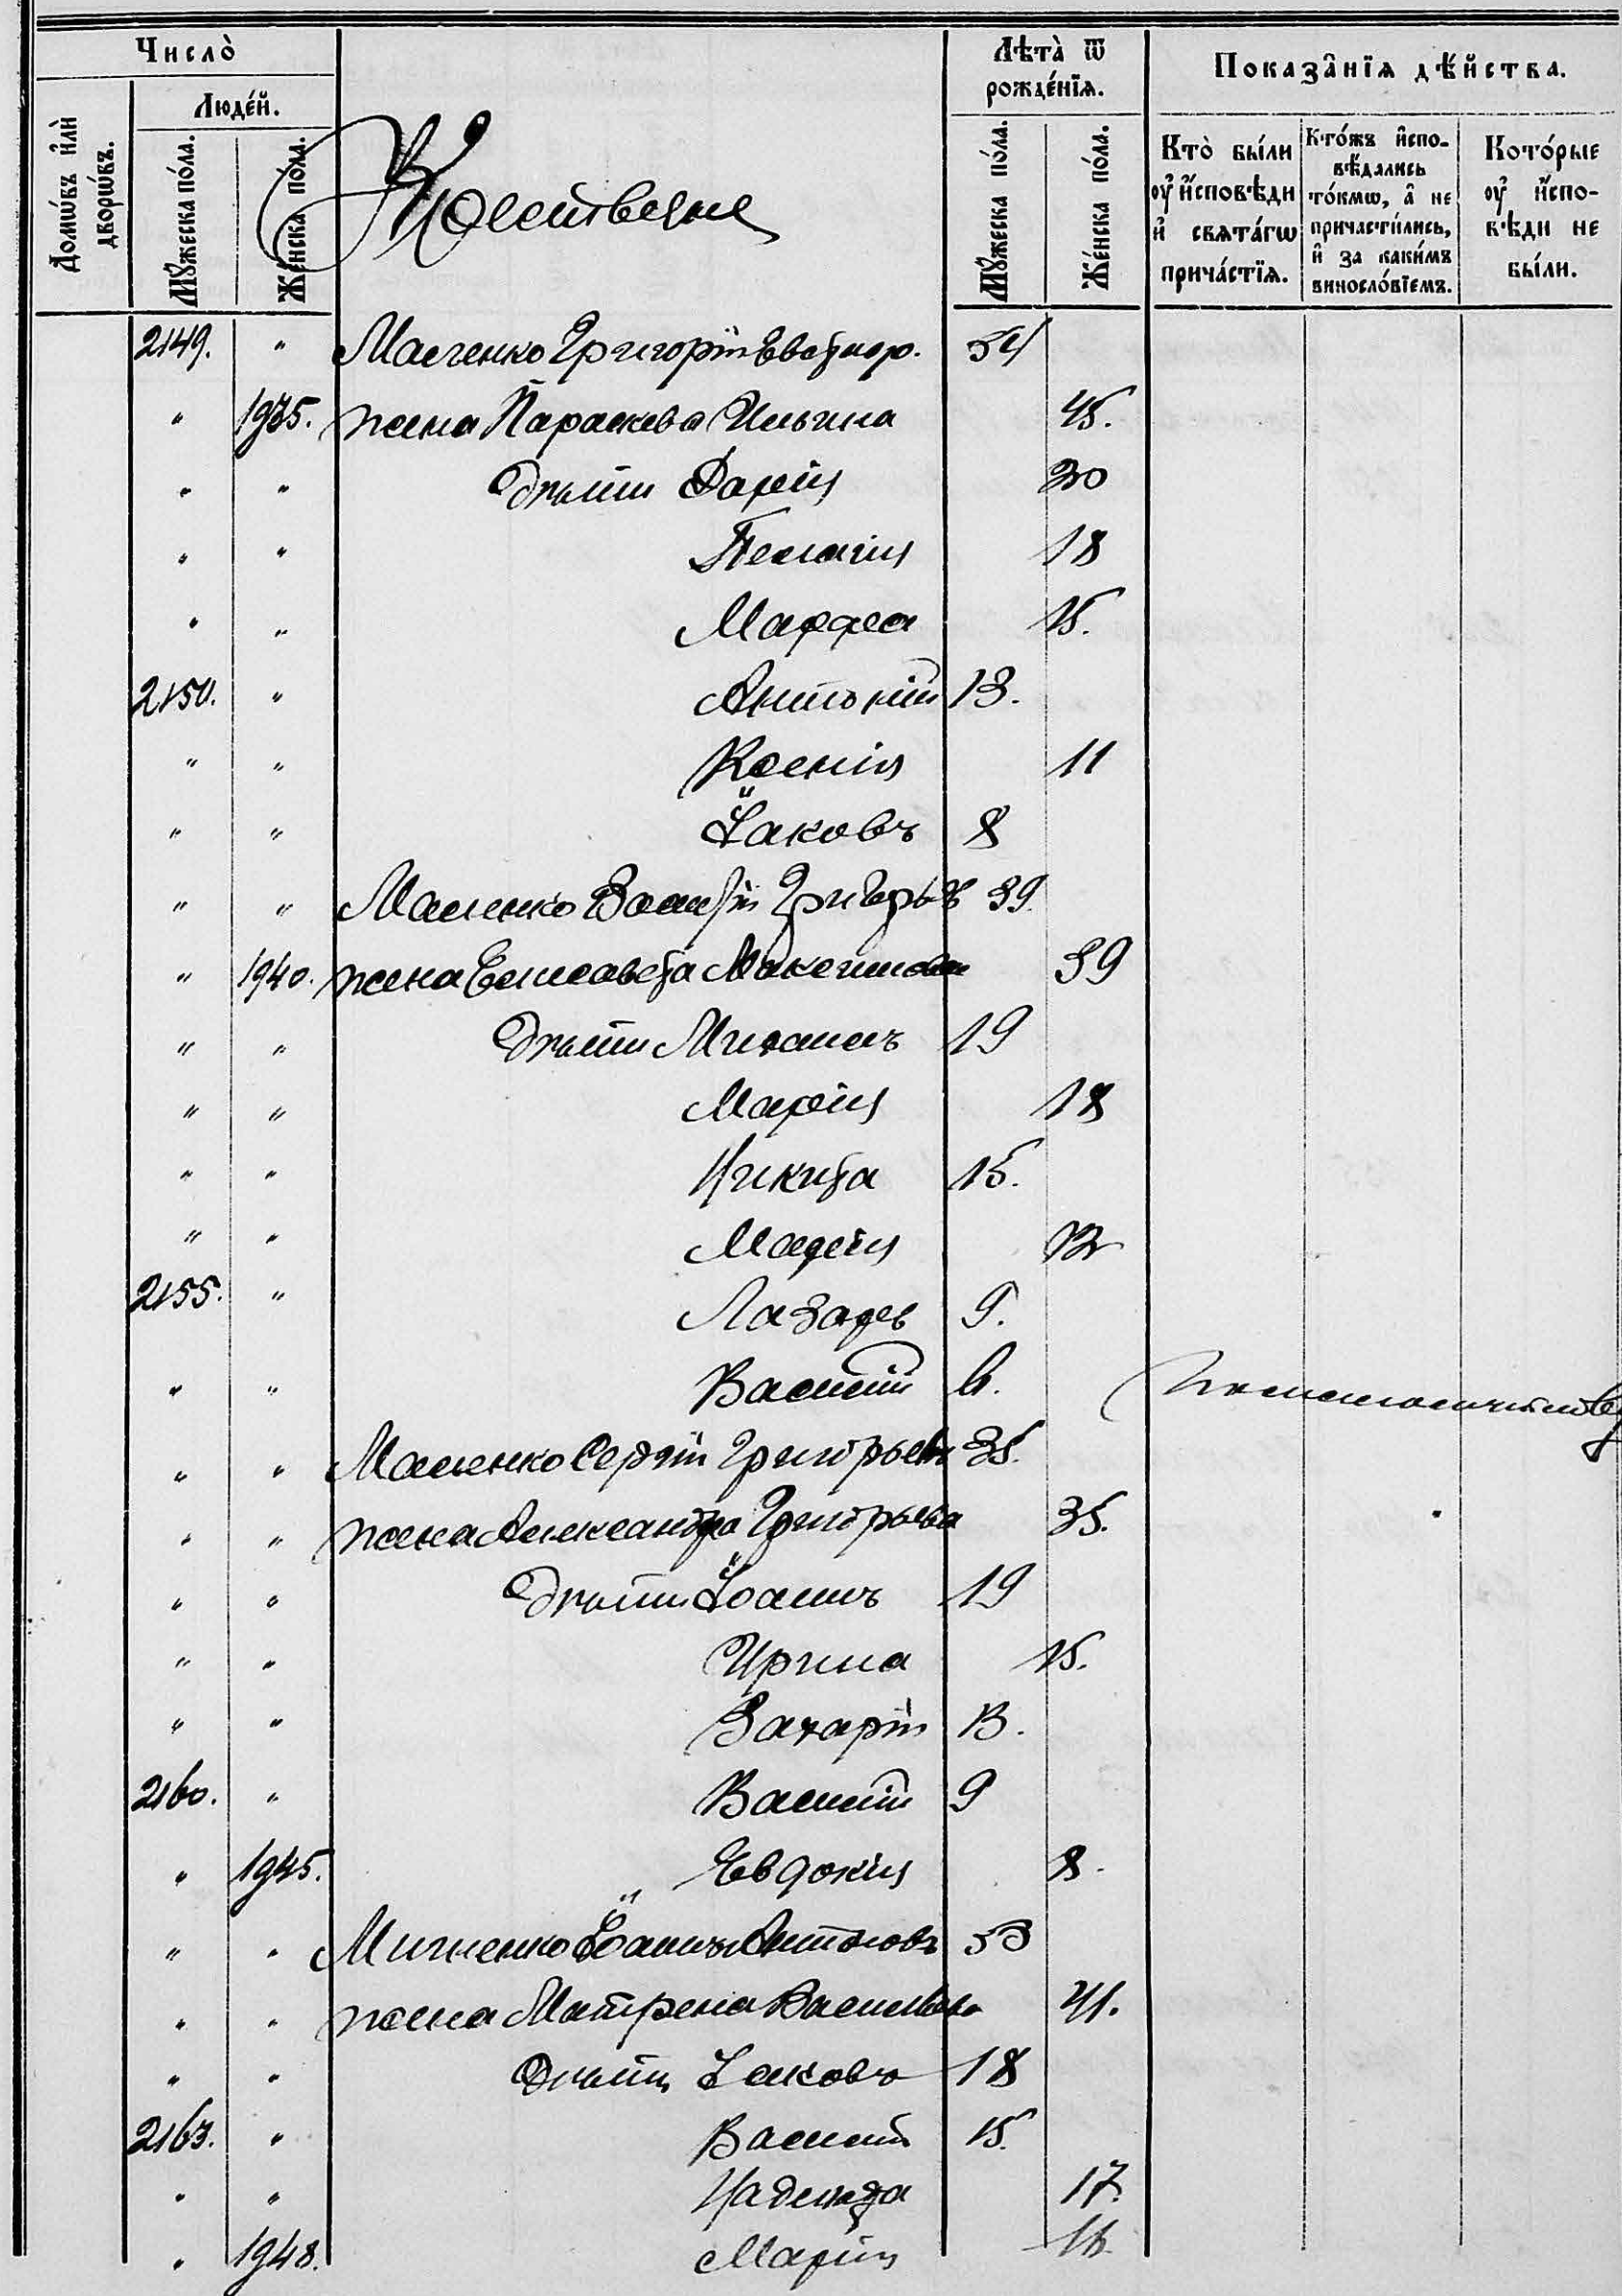 Число̀
Людей.
Домѡвъ и҆лѝ
дворѡвъ.
Мꙋжеска по́ла.
Же́нска по́ла.
Лѣта̀ ѿ
рожде́нїѧ.
Мꙋжеска по́ла.
Же́нска по́ла.
Показа̂нїѧ дѣ́йства.
Кто̀ бы́ли
оу҆ и҆сповѣди
и҆ свѧта́гѡ
прича́стїѧ.
Кто́жъ и҆спо-
вѣдались
то́кмѡ, а҆ не
причасти́лись,
и҆ за каки́мъ
виносло́вїемъ.
Кото́рые
оу҆ и҆спо-
вѣди не
бы́ли.
Крестьяне
2149. " Григорій 54
" 1935. жена Параскева Ильина 45.
" " дѣти Дарія 20
" " Пелагія 18
" " Марфа 15.
2150. " Антоній 13.
" " Ксенія 11
" " Іаковъ 8
" " Маленко Василій Григорьев 39.
" 1940. жена Елисавета Максимова 39
" " дѣти Михаилъ 19
" " Марія 18
" " Никита 15.
" " Марія 12
2155. " Лазарь 9.
" " Василій 6.
" " Маленко Сергій Григорьевъ 35.
" " жена Александра Григорьева 35.
" " дѣти Іоаннъ 19
" " Ирина 15.
" " Захарій 13.
2160. " Василій 9
" 1945. Евдокія 8.
" " Іоаннъ Антоновъ 53
" " жена Матрена Васильева 41.
" " дѣти Іаковъ 18
2163. " Василій 15.
" " Надежда 17.
" 1948. Марія 16.